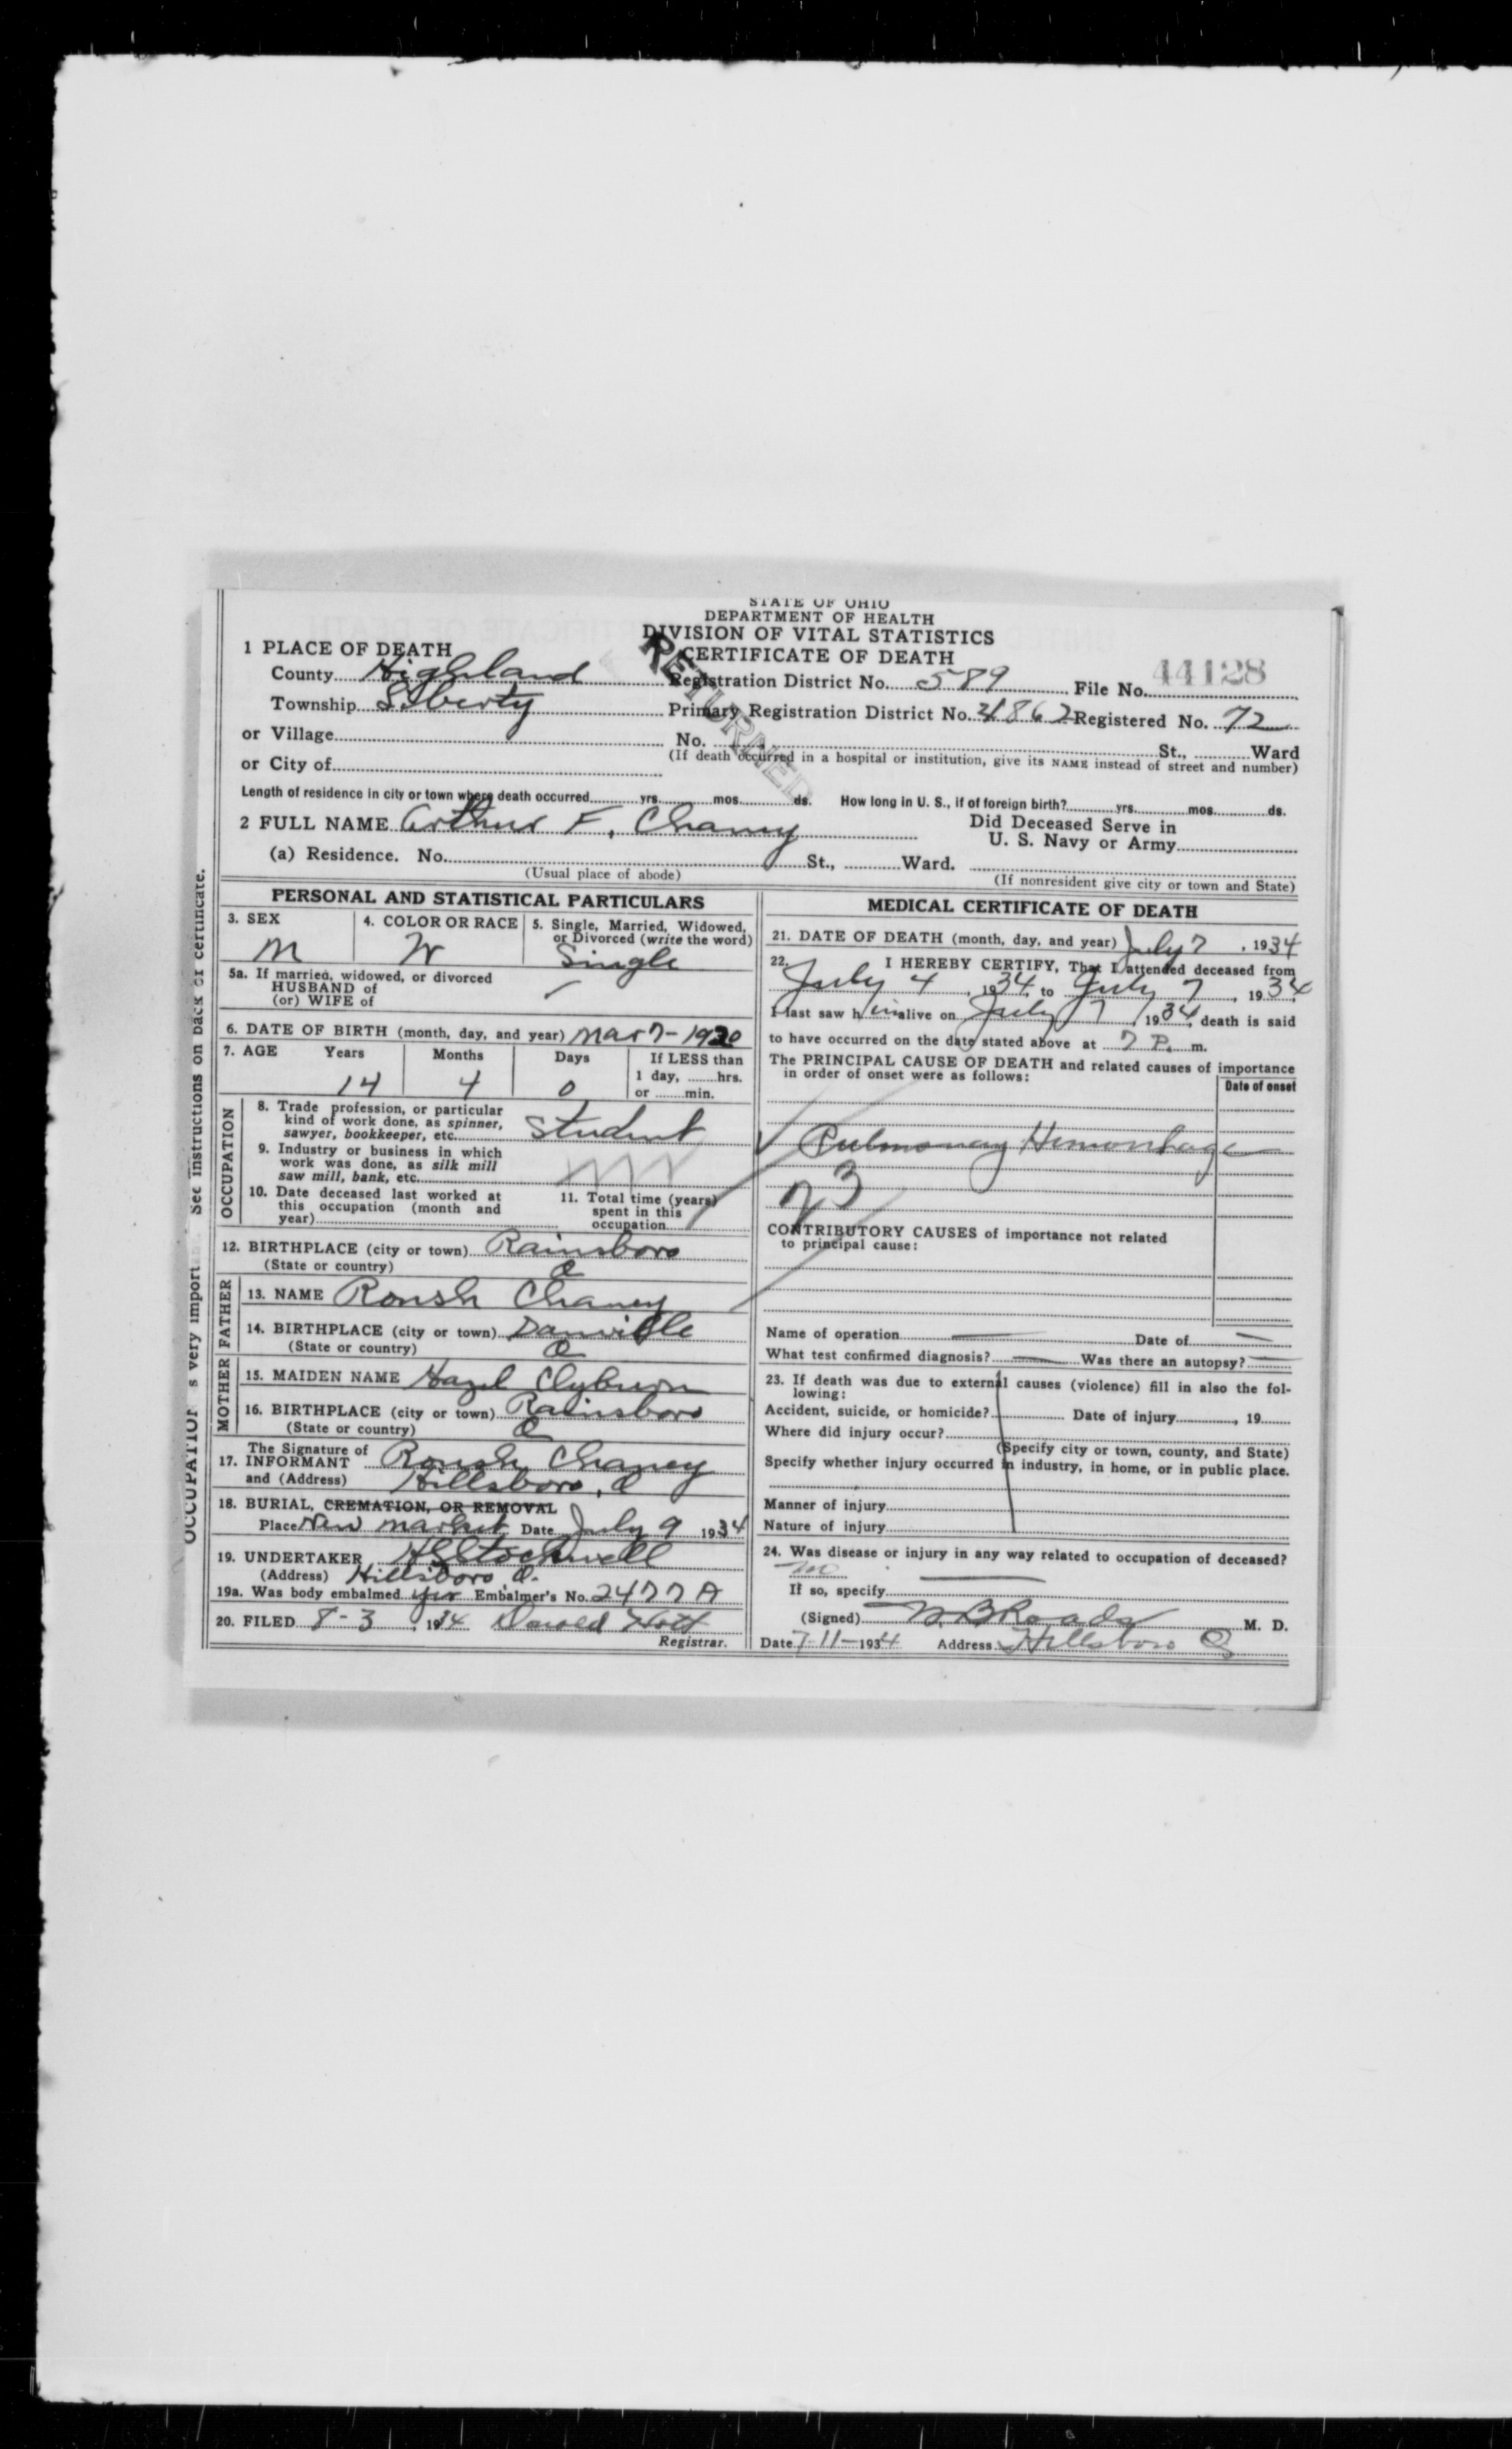 STATE OF OHIO
DEPARTMENT OF HEALTH
DIVISION OF VITAL STATISTICS
CERTIFICATE OF DEATH
RETURNED
1 PLACE OF DEATH
County Highland Registration District No. 589 File No. 44128
Township Liberty Primary Registration District No. 4862 Registered No. 72
or Village No. St., Ward
(If death occurred in a hospital or institution, give its NAME instead of street and number)
or City of
Length of residence in city or town where death occurred yrs. mos. ds. How long in U. S., if of foreign birth? yrs. mos. ds.
2 FULL NAME Arthur F. Chaney Did Deceased Serve in
U. S. Navy or Army
(a) Residence. No. St., Ward.
(Usual place of abode) (If nonresident give city or town and State)
PERSONAL AND STATISTICAL PARTICULARS
3. SEX 4. COLOR OR RACE 5. Single, Married, Widowed,
or Divorced (write the word)
M W Single
5a. If married, widowed, or divorced
HUSBAND of
(or) WIFE of
6. DATE OF BIRTH (month, day, and year) Mar 7-1920
7. AGE Years Months Days If LESS than
1 day, hrs.
14 4 0 or min.
OCCUPATION
8. Trade profession, or particular
kind of work done, as spinner,
sawyer, bookkeeper, etc. Student
9. Industry or business in which
work was done, as silk mill
saw mill, bank, etc.
10. Date deceased last worked at
this occupation (month and
year)
11. Total time (years)
spent in this
occupation
12. BIRTHPLACE (city or town) Rainsboro
(State or country) O
FATHER
13. NAME Roush Chaney
14. BIRTHPLACE (city or town) Danville
(State or country) O
MOTHER
15. MAIDEN NAME Hazel Clyburn
16. BIRTHPLACE (city or town) Rainsboro
(State or country) O
The Signature of
17. INFORMANT Roush Chaney
and (Address) Hillsboro, O
18. BURIAL, CREMATION, OR REMOVAL
Place New Market Date July 9 1934
19. UNDERTAKER Stockwell
(Address) Hillsboro, O.
19a. Was body embalmed yes Embalmer's No. 2477 A
20. FILED 8-3, 1934
Registrar.
MEDICAL CERTIFICATE OF DEATH
21. DATE OF DEATH (month, day, and year) July 7, 1934
22. I HEREBY CERTIFY, That I attended deceased from
July 4, 1934, to July 7, 1934
I last saw him alive on July 7, 1934, death is said
to have occurred on the date stated above at 7 P. m.
The PRINCIPAL CAUSE OF DEATH and related causes of importance
in order of onset were as follows:
Date of onset
Pulmonary Hemorrhage
23
CONTRIBUTORY CAUSES of importance not related
to principal cause:
Name of operation Date of
What test confirmed diagnosis? Was there an autopsy?
23. If death was due to external causes (violence) fill in also the fol-
lowing:
Accident, suicide, or homicide? Date of injury, 19
Where did injury occur?
(Specify city or town, county, and State)
Specify whether injury occurred in industry, in home, or in public place.
Manner of injury
Nature of injury
24. Was disease or injury in any way related to occupation of deceased?
no
If so, specify
(Signed) Roads M. D.
Date 7-11-1934 Address Hillsboro O
OCCUPATION s very import See instructions on back of certificate.